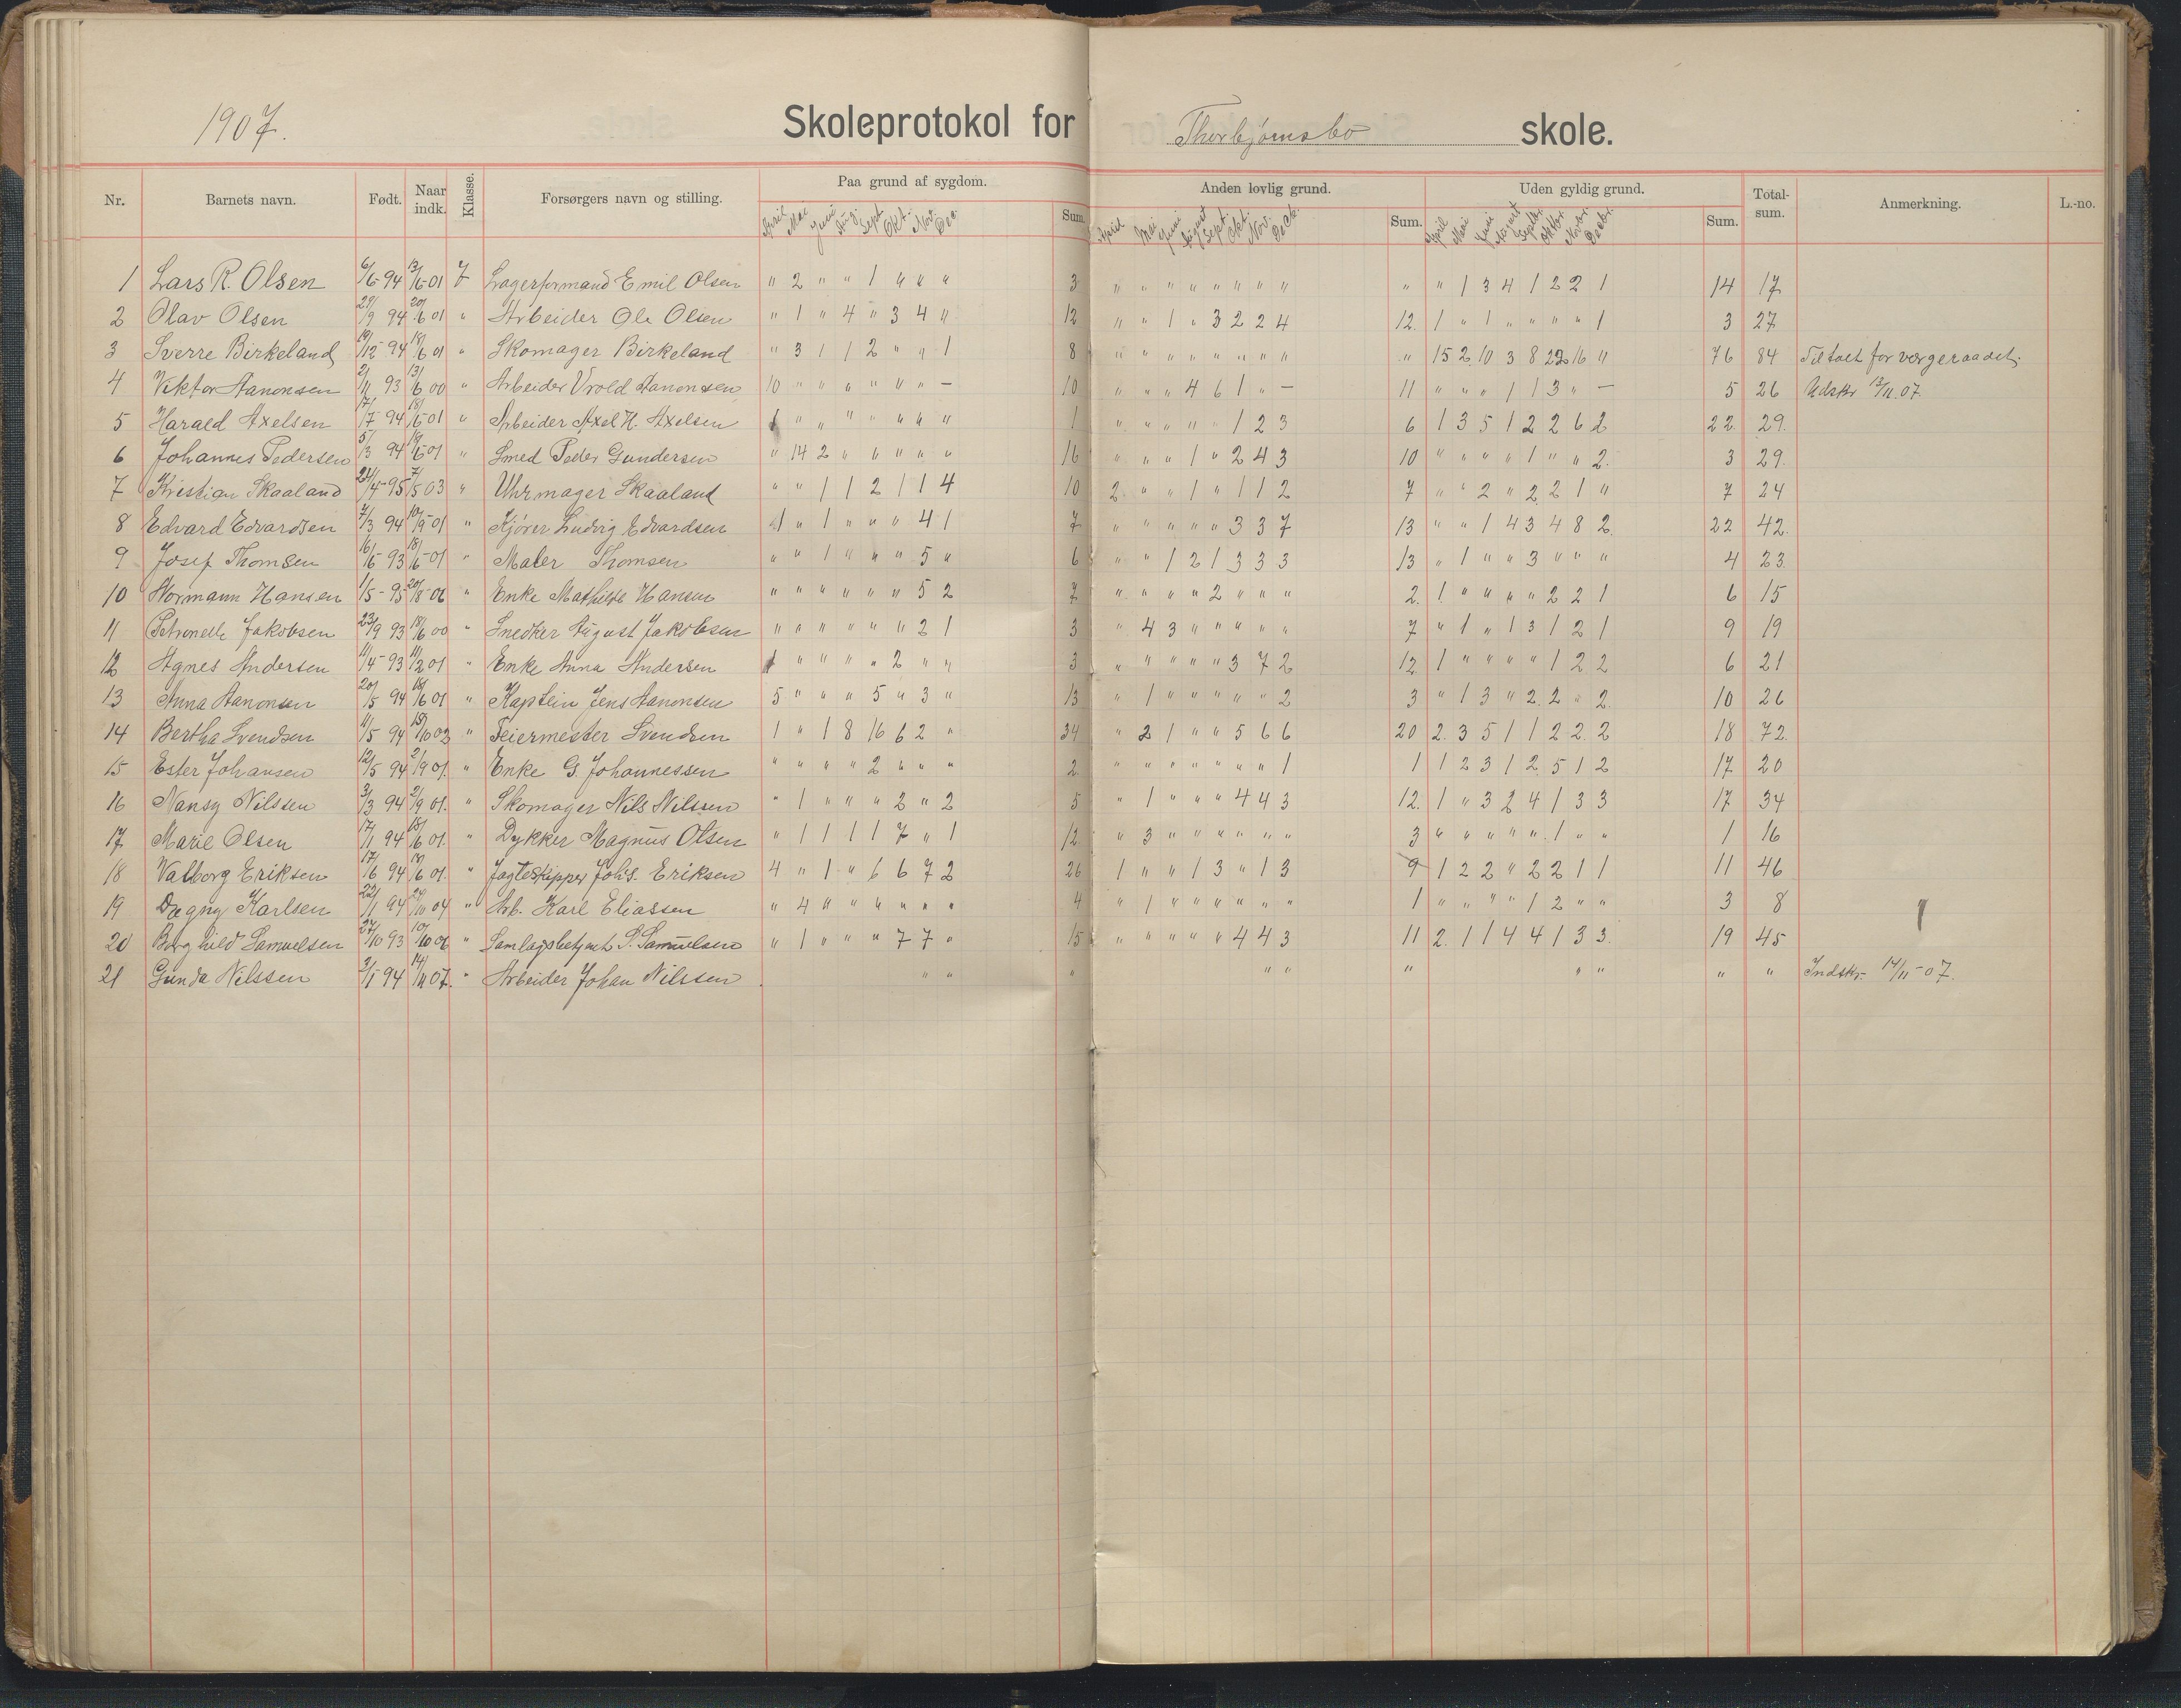 1907. Skoleprotokol for Thorbjørnsbo skole.
Nr. Barnets navn. Født. Naar indk. Klasse. Forsørgers navn og stilling. Paa grund af sygdom. Sum. Anden lovlig grund. Sum. Uden gyldig grund. Sum. Total-sum. Anmerkning. L.-no.
April Mai Juni Aug. Sept. Okt. Nov. Dec. April Mai Juni August Sept. Okt. Nov. Decb. April Mai Juni August Septbr. Oktbr. Novbr. Decbr.
1 Lars R. Olsen 6/6-94 13/6-01 7 Lagerformand Emil Olsen " 2 " " 1 " " " 3 " " " " " " " " " " 1 3 4 1 2 2 1 14 17
2 Olav Olsen 29/9 94 20/6 01 " Arbeider Ole Olsen " 1 " 4 " 3 4 " 12 " " 1 " 3 2 2 4 12. 1 " 1 " " " " 1 3 27
3 Sverre Birkeland 19/12-94 18/6 01 " Skomager Birkeland " 3 1 1 2 " " 1 8 " " " " " " " " " 15 2 10 3 8 22 16 " 76 84 Tiltalt for vergeraadet.
4 Viktor Aanonsen 2/11 93 13/6 00 " Arbeider Vrold Aanonsen 10 " " " " " " – 10 " " " 4 6 1 " – 11 " " " 1 1 3 " – 5 26 Udskr 13/11.07.
5 Harald Axelsen 17/7 94 18/6 01 " Arbeider Axel H. Axelsen 1 " " " " " " " 1 " " " " " 1 2 3 6 1 3 5 1 2 2 6 2 22. 29.
6 Johannes Pedersen 5/3 94 18/6 01 " Smed Peder Gundersen " 14 2 " " " " " 16 " " " 1 " 2 4 3 10 " " " " 1 " " 2. 3 29.
7 Kristian Skaaland 24/4-95 7/5 03 " Uhrmager Skaaland " " 1 1 2 1 1 4 10 2 " " 1 " 1 1 2 7 " " 2 " 2 2 1 " 7 24
8 Edvard Edvardsen 7/3 94 10/9-01 " Kjører Ludvig Edvardsen 1 " 1 " " " 4 1 7 " " " " " 3 3 7 13 " " 1 4 3 4 8 2. 22 42.
9 Josef Thomsen 16/6 93 18/6-01 " Maler Thomsen " " 1 " " " 5 " 6 " " 1 2 1 3 3 3 13 " 1 " " 3 " " " 4 23.
10 Hormann Hansen 1/5-95 20/8-06 " Enke Mathilde Hansen " " " " " " 5 2 7 " " " " 2 " " " 2. 1 " " " " 2 2 1 6 15
11 Petronelle Jakobsen 23/9 93 18/6 00 " Snedker August Jakobsen " " " " " " 2 1 3 " 4 3 " " " " " 7 " 1 " 1 3 1 2 1 9 19
12 Agnes Andersen 11/4-93 11/2 01 " Enke Anna Andersen 1 " " " " 2 " " 3 " " " " " 3 7 2 12 1 " " " " 1 2 2 6 21
13 Anna Aanonsen 20/5 94 18/6 01 " Kaptein Jens Aanonsen 5 " " " 5 " 3 " 13 " 1 " " " " " 2 3 " 1 3 " 2 2 " 2. 10 26
14 Bertha Svendsen 11/5 94 19/10 03 " Feiermester Svendsen 1 " 1 8 16 6 2 " 34 " 2 1 " " 5 6 6 20 2. 3 5 1 1 2 2 2 18 72.
15 Ester Johansen 12/5 94 2/9 01. " Enke G. Johannessen " " " " 2 " " " 2 " " " " " " " 1 1 1 2 3 1 2 5 1 2 17 20
16 Nansy Nilssen 3/3 94 2/9 01. " Skomager Nils Nilssen " 1 " " " 2 " 2 5 " 1 " " " 4 4 3 12. 1 " 3 2 4 1 3 3 17 34
17 Marie Olsen 17/11 94 18/6 01. " Dykker Magnus Olsen " 1 1 1 1 7 " 1 12 " 3 " " " " " " 3 " " " " " 1 " " 1 16
18 Valborg Eriksen 17/6 94 19/6 01. " Jagteskipper Johs. Eriksen 4 " 1 " 6 6 7 2 26 1 " " 1 3 " 1 3 9 1 2 2 " 2 2 1 1 11 46
19 Dagny Karlsen 22/1 94 24/10 04 " Arb. Karl Eliassen " 4 " " " " " " 4 " 1 " " " " " " 1 " " " " 1 2 " " 3 8
20 Borghild Samuelsen 27/10 93 10/10 06 " Samlagsbetjent S. Samuelsen " 1 " " " 7 7 " 15 " " " " " 4 4 3 11 2. 1 1 4 4 1 3 3. 19 45
21 Gunda Nilssen 3/1 94 14/11 07. " Arbeider Johan Nilssen " " " " " " " " " " Indskr. 14/11-07.